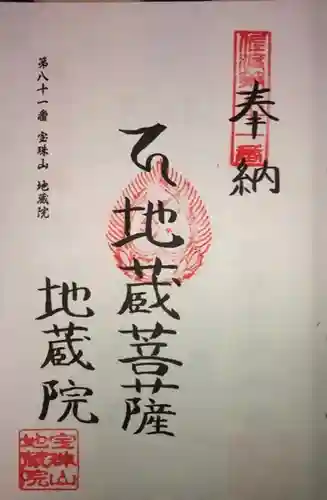 奉納
地蔵菩薩
地蔵院
第八十一番 宝珠山 地蔵院
宝珠山
地蔵院